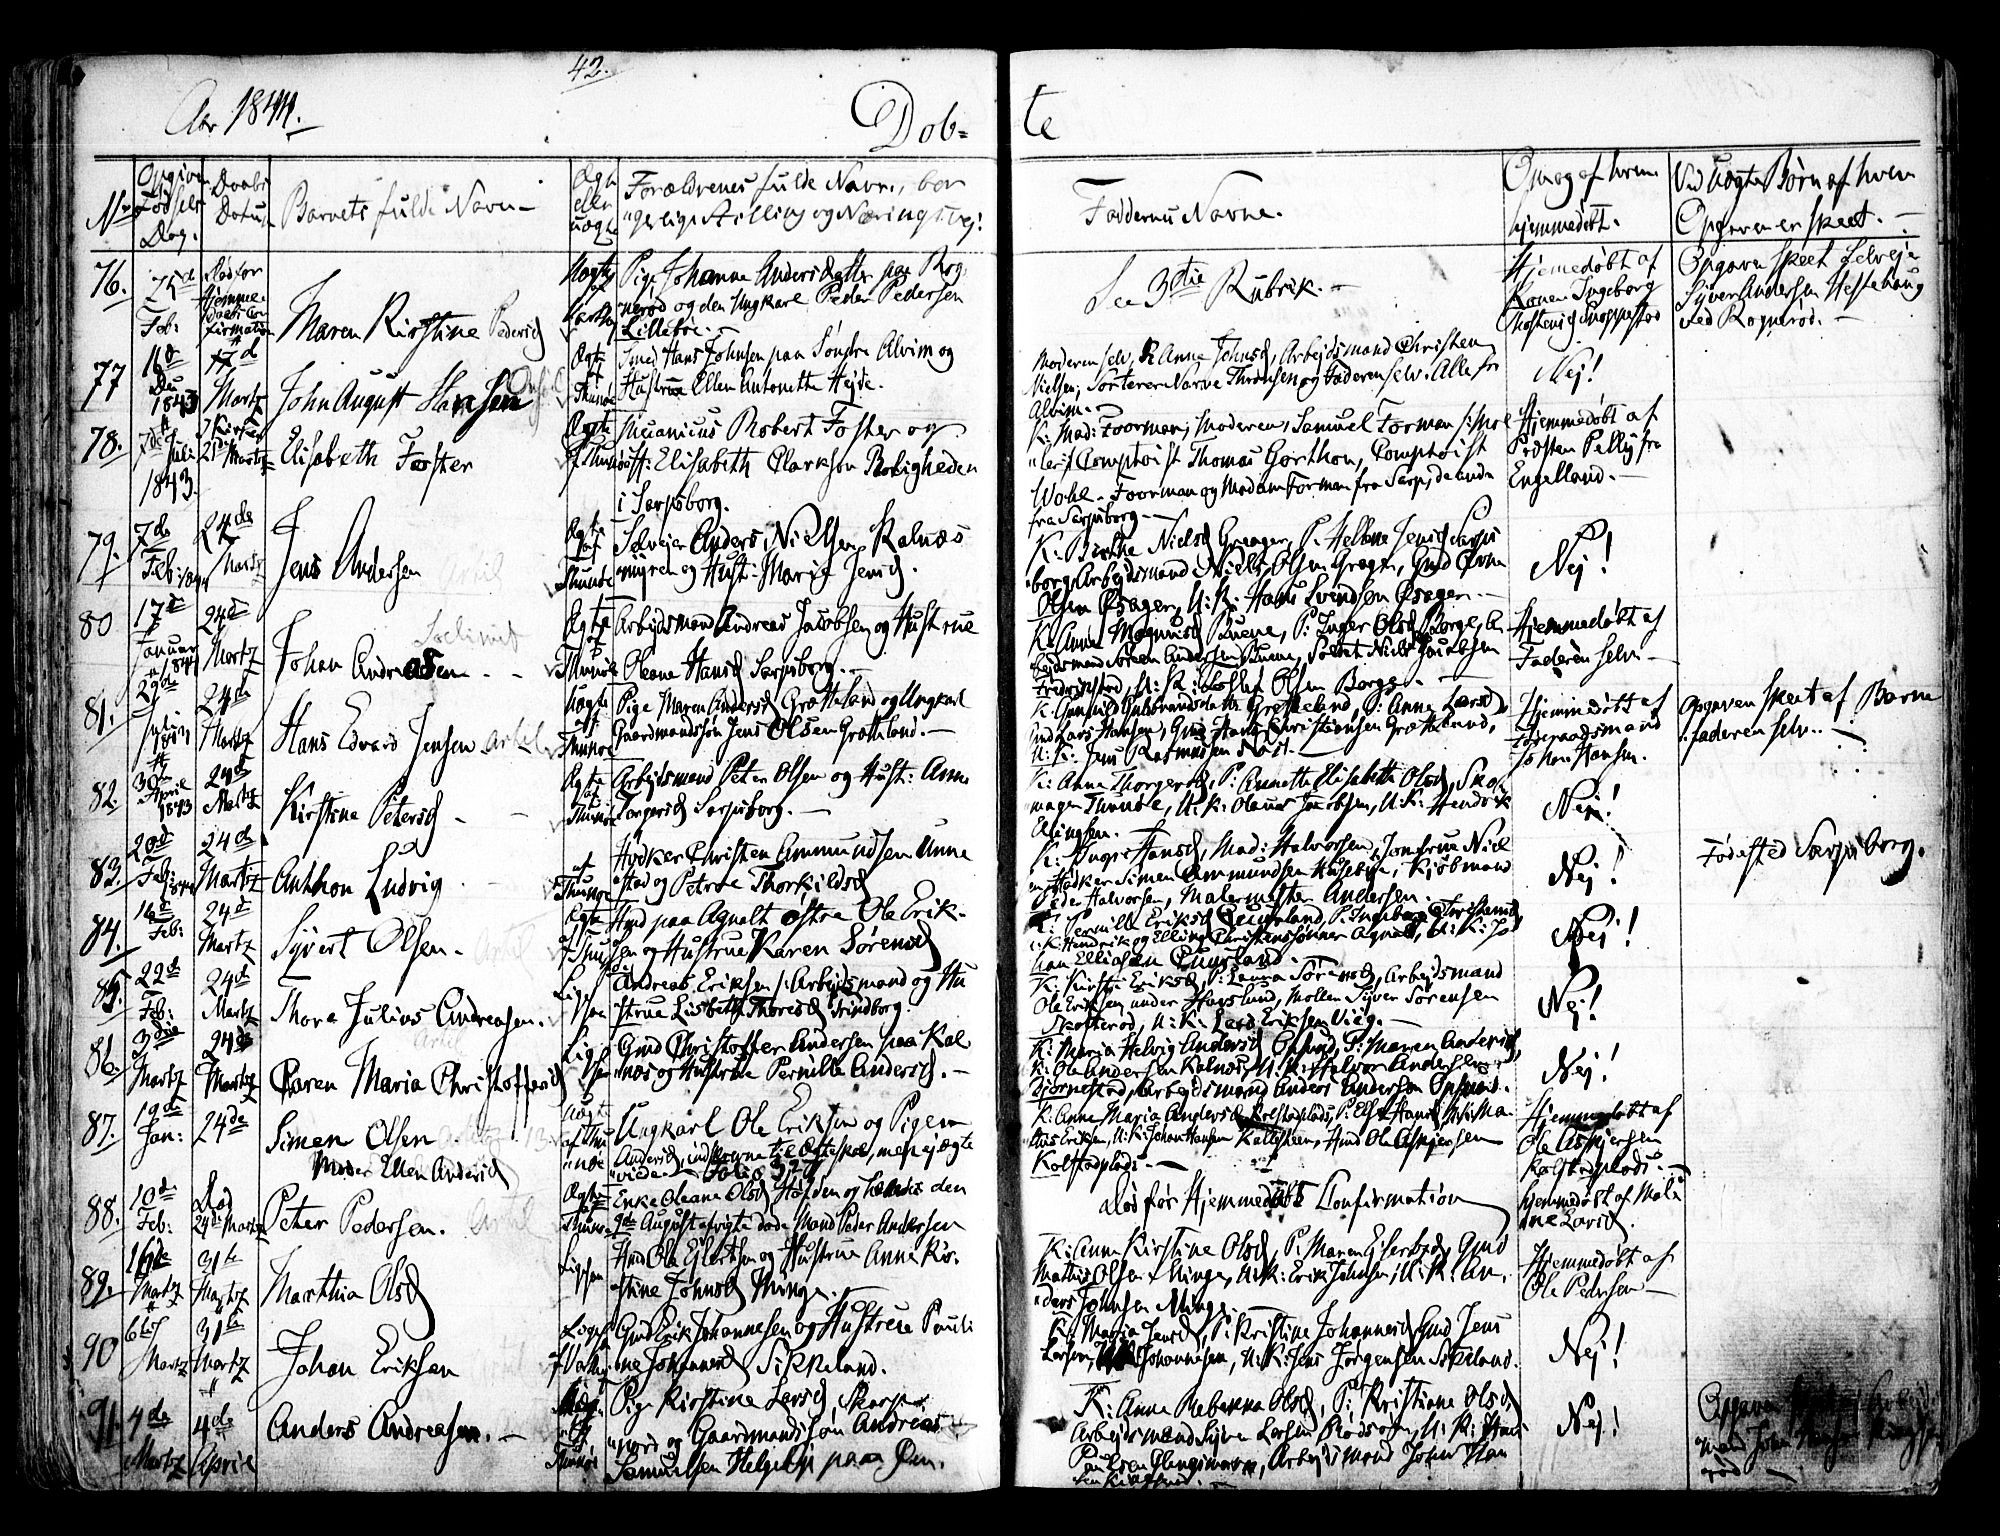 42.
Aar 1844.
Døb=
te
No
Opgiven Fødsels Dag.
Daabs Datum
Barnets fulde Navn
Ægte eller uægte
Forældrenes fulde Navne, bor
"gerlige Stilling og Næringsvej.
Faddernes Navne.
Opneg af hvem
hjemmedøbt.
Ved Uægte Børn af hvem
Opgaven er skeet.
76.
25de
Feb:
død før
Hjemme-
daabs Con
firmation
Maren Kirstine Pedersd
Uægte
Pige Johanne Andersdatter paa Rog
nerød og den Ungkarl Peder Pedersen
Lilleboe.
See 3die Rubrik.
Hjemedøbt af
Konen Ingeborg
Opgaven skeet Selveje
Syver Andersen Hestehaug
ved Rognerød.
77
11de
1843
17de
Martz
John August Hansen
Ægte
Thunøe
Smed Hans Johnsen paa Søndre Alvim og
Hustrue Ellen Antonette Hejde.
Moderen selv, P. Anne Johnsd, Arbejdsmand Christen
Nielsen, Sorterer Narve Thrónsen og Faderen selv. Alle fra
Alvim.
Nej!
78.
7de Juli
1843.
21de Martz
Elisabeth Foster
Ægte
Mecanicus Robert Foster og
H: Elisabeth Clarkson Boligheden
i Sarpsborg.
K: Mad: Foorman, Moderen, Samuel Forman
Comptoist Thomas Gorthon, Comptoist
Wohl. Foorman og Madam Forman fra Sarp, de andre
fra Sarpsborg
Hjemmedøbt af
Præsten Pelly fra
Engelland.
79.
7de
Feb: 1844
24de
Martz
Jens Andersen
Ægte
af
Thunøe
Selvejer Anders Nielsen Kalnæs
myren og Hust: Marie Jensd.
K. Birthe Nielsd Greager, P. Hellene Jensd Sarps
borg, Arbejdsmand Niels Olsen Gregen, Gmd Even
Olsen Osagen, U: K: Hans Svendsen Osagen.
Nej!
80
17de
Januar
1844
24de
Martz
Johan Andreasen
Ægte
Thunøe
Arbejdsmand Andreas Jacobsen og Hustrue
Oleane Hansd Sarpsborg.
K: Anne Magnusd Buene, P: Inger Olsd Borge, Ar
bejdsmand Søren Andersen Buene, Soldat Niels Jacobsen
Fredrichstad, U: K: Olsen Borge.
Hjemmedøbt af
Faderen selv.
81.
29de
Juli
1843
24de
Martz
Hans Edvard Jensen
Uægte
af
Thunøe
Pige Maren Andersd Grotteland og Ungkarl
Gaardmandssøn Jens Olsen Grotteland.
K: Gunhild Gulbrandsdatter Grotteland, P: Anne Larsd
Gmd Lars Hansen, Gmd Hans Christiansen Grotteland,
U: K: Jens Rasmusen
Hjemmedøbt af
Forraadsmand
Johan Hansen.
Opgaven skeet af Barne
faderen selv.
82.
30
April
1843
24de
Martz
Kirstine Petersd
Ægte
af
Thunøe
Arbejdsmand Peter Olsen og Hust: Anne
Torgersd Sarpsborg.
K: Anne Thorgersd, P: Annette Elisabeth Olsd, Sko
mager Thunøe, U: K: Olaus Jacobsen, U: K: Hendrik
Ellingsen.
Nej!
83.
20de
Feb: 1844
24de
Martz
Anthon Ludvig
af
Thunøe
Hydker Christen Ammundsen Unne
stad og Petroe Thorkildsd
K: Ingri Hansd, Mad: Halvorsen, Jomfrue Niel
sen, Hydker Simen Ammundsen Huseby, Kjøbmand
Peder Halvorsen, Malermester Andersen.
Nej!
Fødested Sarpsborg.
84.
16de
Feb:
24de
Martz
Syvert Olsen.
Ægte
Hmd paa Agnalt østre Ole Erik-
sen og Hustrue Karen Sørensd
K: Pernille Eriksd
U: K: Hendrik og Elling Christenssønner Agnalt, U: K: Jo
han Elliasen
Nej!
85.
22de
Feb:
24de
Martz
Thore Julius Andreasen.
Ligesaa
Andreas Eriksen Arbejdsmand og Hu
strue Lisbeth Thoresd Trindborg.
K: Kirstine Eriksd, P: Laura Sørensd, Arbejdsmand
Ole Eriksen under Hauslund, Møllen Syver Sørensen
Skofterød, U: K: Lars Eriksen Vieg.
Nej!
86.
3die
Martz
24de
Martz
Caren Maria Christoffersd
Ligesaa
Gmd Christoffer Andersen paa Kal
næs og Hustrue Pernille Andersd.
K: Maria Helvig Andersd Opsund, P: Maren Andersd,
K: Ole Andersen Kalnæs, U: K: Halvor Andersen
Bjørnestad, Arbejdsmand Anders Andersen Opsund.
Nej!
87.
19de
Jan:
24de
Simen Olsen
Moder Ellen Andersd
Uægte
af Thu
"nøe
Ungkarl Ole Eriksen og Pigen
Andersd, indskrevne til Ægteskab, men ej ægte
viede. Folio
K: Anne Maria Andersd Kolstadplads, P. Else Hansd, Ma
this Eriksen, U: K: Johan Hansen Kattesteen, Hmd Ole Asbjørsen
Kolstadplads.
Hjemmedøbt af
Ole Asbjørsen
Kolstadplads.
88.
10de
Feb:
Død
24de Martz
Peter Pedersen.
Ægte
af
Thunøe
Enke Oleane Olsd Hafden og hendes den
9de August afvigte døde Mand Peder Andersen
død før Hjemmedøbt Confirmation
hjemmedøbt af Mali
ne Larsd.
89.
16de
Martz
31te
Martz
Marthia Olsd
Ligesaa
Hmd Ole Ejlertsen og Hustrue Anne Kir-
stine Johnsd Minge.
K: Anne Kirstine Olsd, P: Maren Ejlertsd, Gmd
Mathis Olsen Minge, U: K: Erik Johnsen, U: K: An-
ders Johnsen Minge.
Hjemmedøbt af
Ole Pedersen
90
6te
Martz
31te
Martz
Johan Eriksen
Ligesaa
Gmd Erik Johannesen og Hustrue Pauli
ne Johannesd Sikkeland.
K: Maria Jensd, P: Kristine Johannesd, Gmd Jens
Larsen, Johannesen, U: K: Jens Jørgensen Sikeland.
Nej!
91.
4de
Martz
4de
April
Anders Andreasen.
Uægte
af
Thunøe
Pige Kirstine Larsd Skarp
nord og Gaardmandssøn Andreas
Samuelsen Helgeby paa Øen.
K: Anne Rebekka Olsd, P: Kristiane Olsd,
Arbejdsmand Syver Larsen Brodsøen, U: K: Hans
Paulsen Elingsmoen, Arbejdsmand John Han
sen
Nej!
Opgaven
mand John